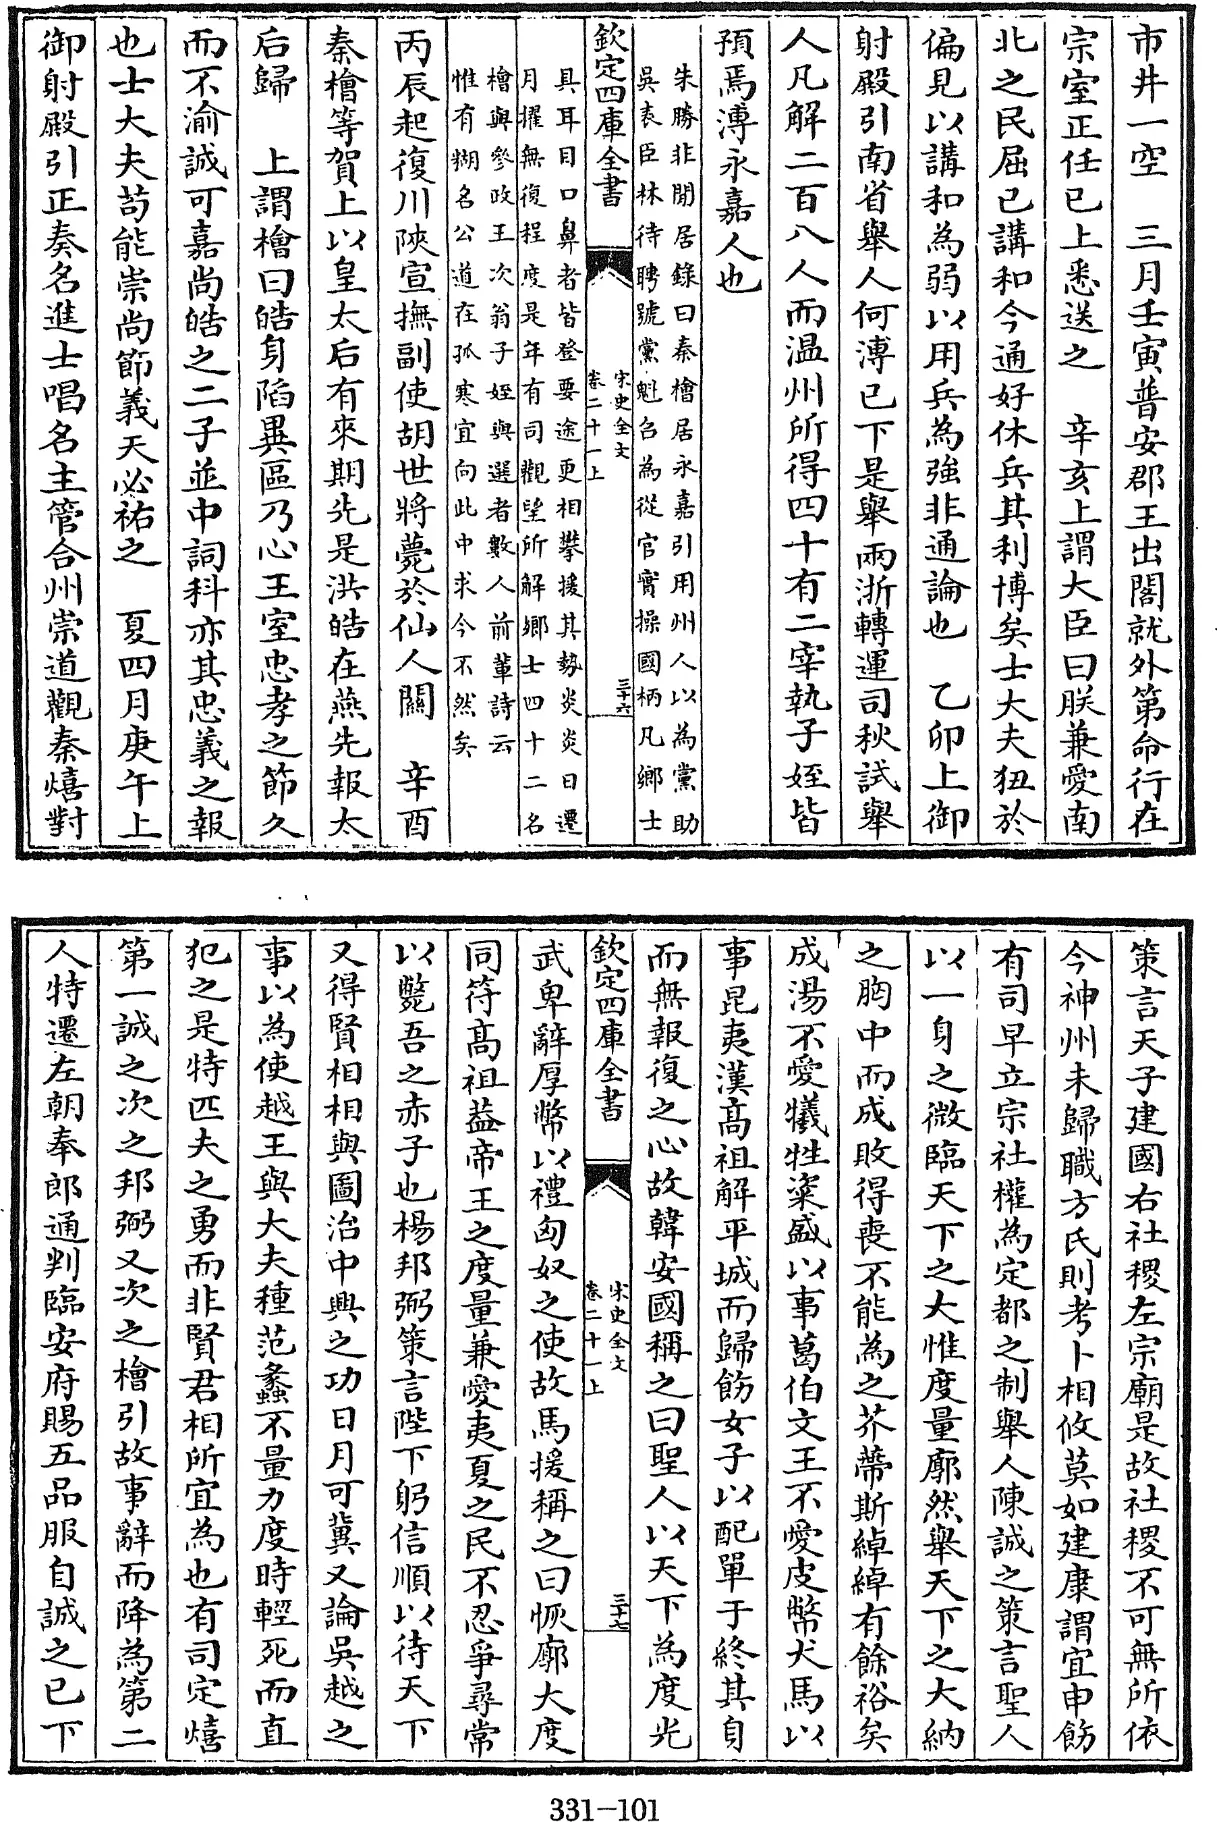 市井一空　三月壬寅普安郡王出閤就外第命行在
宗室正任已上悉送之　辛亥上謂大臣曰朕兼愛南
北之民屈已講和今通好休兵其利博矣士大夫狃於
偏見以講和為弱以用兵為強非通論也　乙卯上御
射殿引南省舉人何溥已下是舉兩浙轉運司秋試舉
人凡解二百八人而温州所得四十有二宰執子姪皆
預焉溥永嘉人也
朱勝非閒居錄曰秦檜居永嘉引用州人以為黨助
吳表臣林待聘號黨魁名為從官實操國柄凡鄉士
欽定四庫全書
宋史全文
卷二十一上
三十六
具耳目口鼻者皆登要途更相攀援其勢炎炎日遷
月擢無復程度是年有司觀望所解鄉士四十二名
檜與參政王次翁子姪與選者數人前輩詩云
惟有糊名公道在孤寒宜向此中求今不然矣
丙辰起復川陝宣撫副使胡世將薨於仙人關　辛酉
秦檜等賀上以皇太后有來期先是洪皓在燕先報太
后歸　上謂檜曰皓身陷異區乃心王室忠孝之節久
而不渝誠可嘉尚皓之二子並中詞科亦其忠義之報
也士大夫苟能崇尚節義天必祐之　夏四月庚午上
御射殿引正奏名進士唱名主管台州崇道觀秦熺對
策言天子建國右社稷左宗廟是故社稷不可無所依
今神州未歸職方氏則考卜相攸莫如建康謂宜申飭
有司早立宗社權為定都之制舉人陳誠之策言聖人
以一身之微臨天下之大惟度量廓然舉天下之大納
之胸中而成敗得喪不能為之芥蔕斯綽綽有餘裕矣
成湯不愛犧牲粢盛以事葛伯文王不愛皮幣犬馬以
事昆夷漢高祖解平城而歸飭女子以配單于終其身
而無報復之心故韓安國稱之曰聖人以天下為度光
欽定四庫全書
宋史全文
卷二十一上
三十七
武卑辭厚幣以禮匈奴之使故馬援稱之曰恢廓大度
同符高祖葢帝王之度量兼愛夷夏之民不忍爭尋常
以斃吾之赤子也楊邦弼策言陛下躬信順以待天下
又得賢相相與圖治中興之功日月可冀又論吳越之
事以為使越王與大夫種范蠡不量力度時輕死而直
犯之是特匹夫之勇而非賢君相所宜為也有司定熺
第一誠之次之邦弼又次之檜引故事辭而降為第二
人特遷左朝奉郎通判臨安府賜五品服自誠之已下
331-101